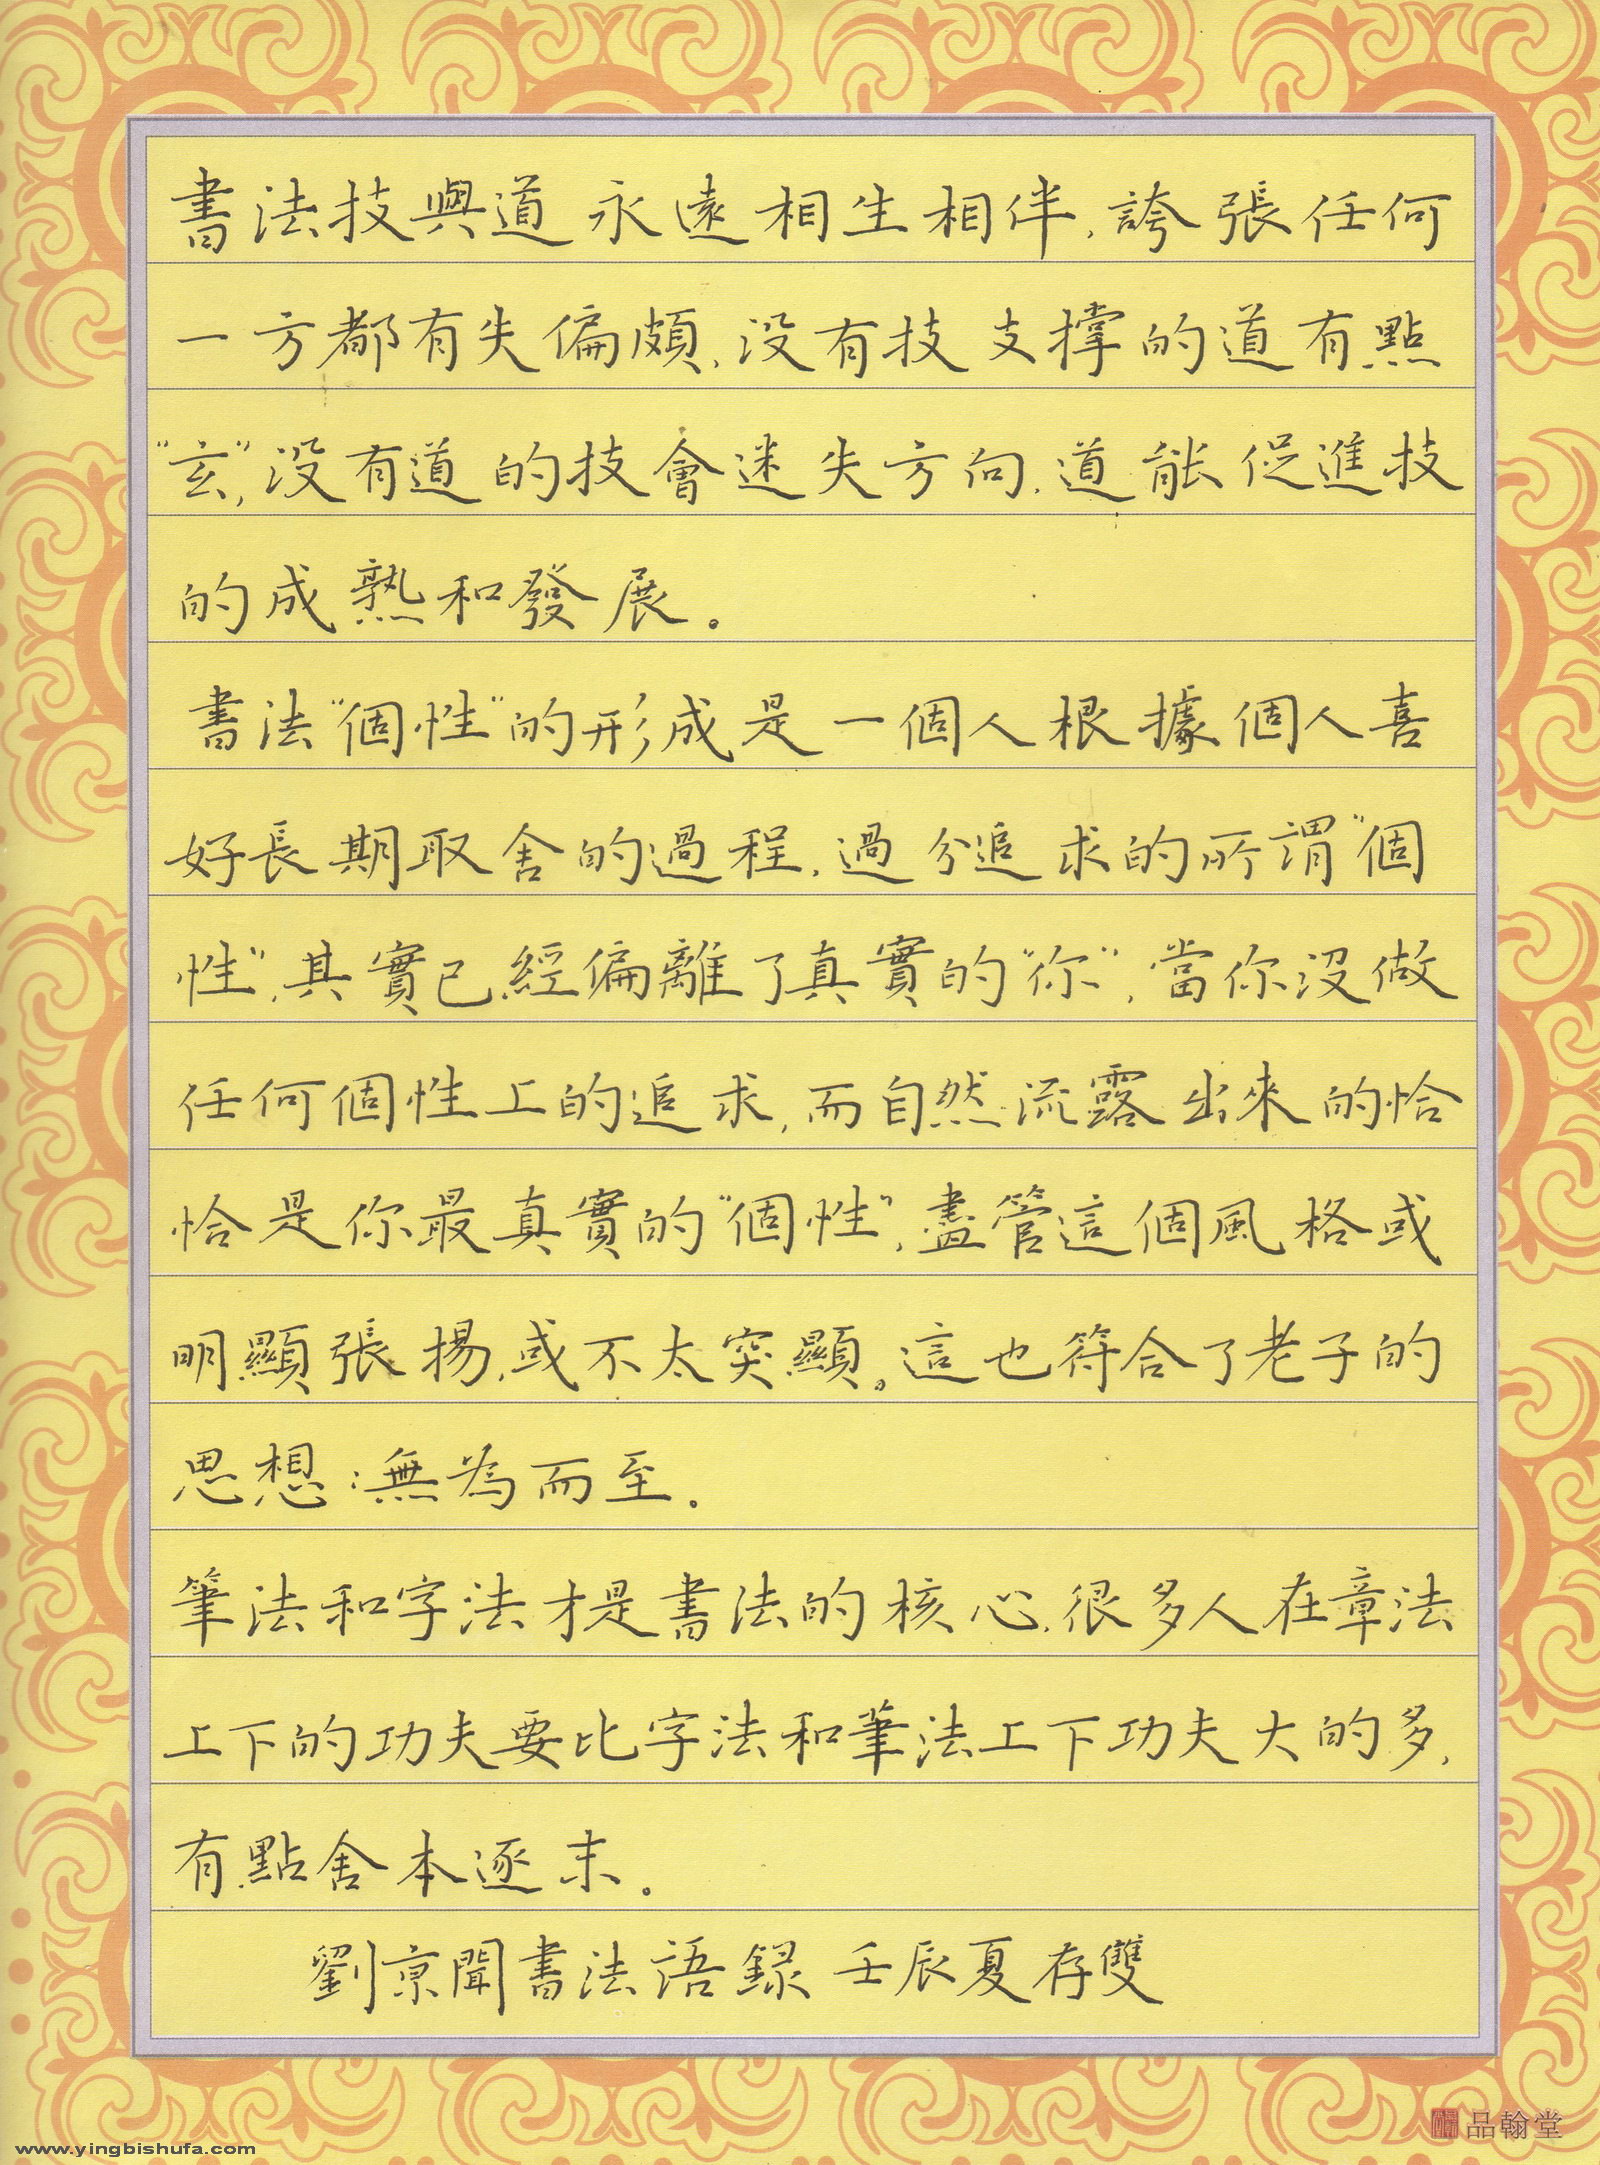 書法技與道永遠相生相伴，誇張任何
一方都有失偏頗，没有技支撐的道有點
“玄”，没有道的技會迷失方向，道能促進技
的成熟和發展。
書法“個性”的形成是一個人根據個人喜
好長期取舍的過程，過分追求的所謂“個
性”，其實已經偏離了真實的“你”，當你没做
任何個性上的追求，而自然流露出來的恰
恰是你最真實的“個性”，盡管這個風格或
明顯張揚，或不太突顯。這也符合了老子的
思想：無為而至。
筆法和字法才是書法的核心，很多人在章法
上下的功夫要比字法和筆法上下功夫大的多，
有點舍本逐末。
劉京聞書法語録 壬辰夏存雙
www.yingbishufa.com
品翰堂